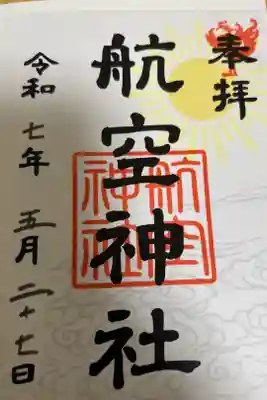 奉拝
航空神社
航空
神社
令和七年五月二十七日